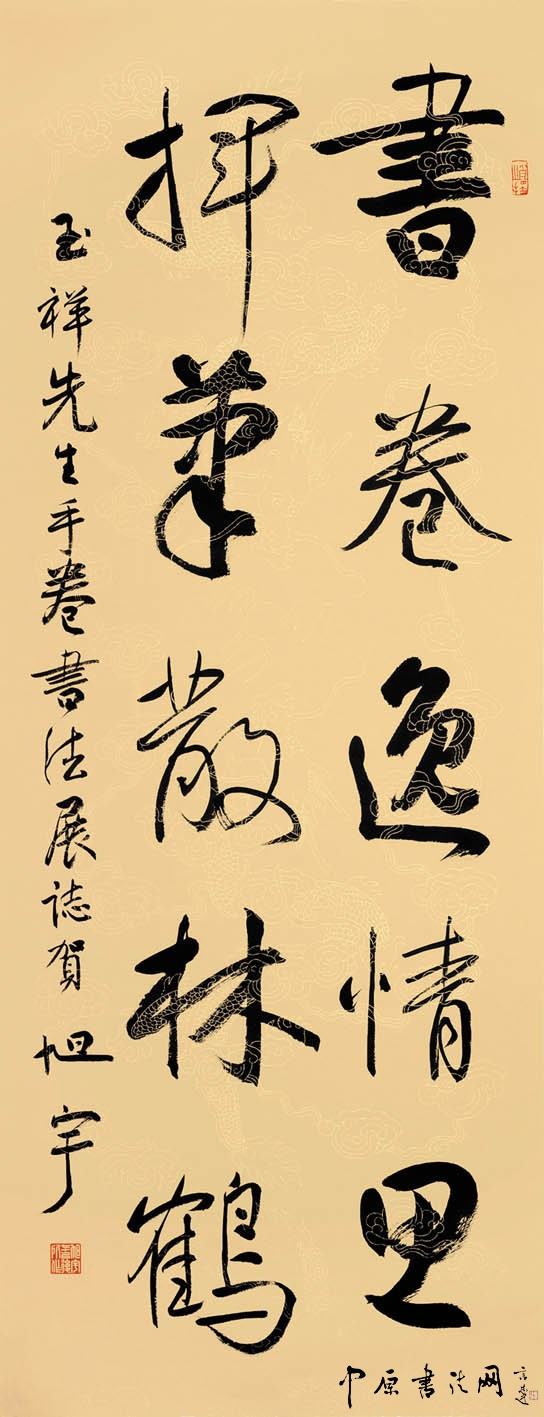 書卷逸情思
揮筆散林鶴
玉祥先生手卷書法展誌賀 旭宇
中原书法网